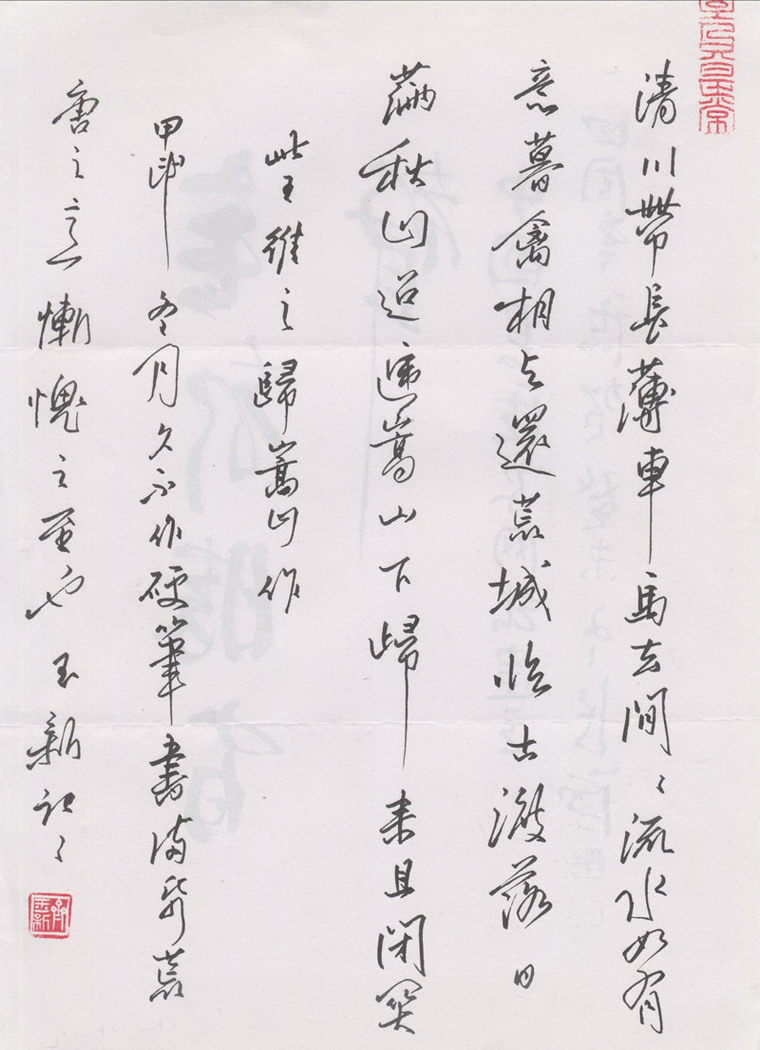 清川帶長薄車馬去閒〻流水如有
意暮禽相与還荒城临古渡落日
滿秋山迢遞嵩山下歸来且閉関
此王維之歸嵩山作
甲申冬月久不作硬筆書滿紙荒
唐之意慚愧之至也玉新記〻